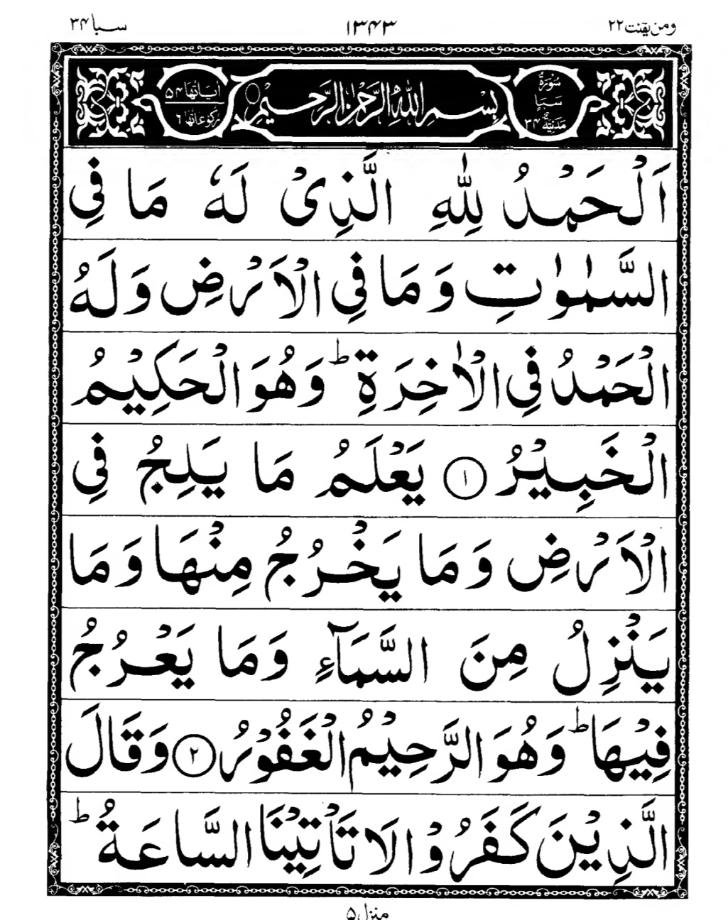 سبا ۳۴ ۱۳۴۳ ومن یقنت ۲۲
سُوْرَةُ سَبَاٍ مَدَنِیَّةٌ ۳۴ بِسْمِ اللهِ الرَّحْمٰنِ الرَّحِیْمِ اٰیَاتُهَا ۵۴ رُکُوْعَاتُهَا ۶
اَلْحَمْدُ لِلّٰهِ الَّذِیْ لَهٗ مَا فِی
السَّمٰوٰتِ وَمَا فِی الْاَرْضِ وَلَهُ
الْحَمْدُ فِی الْاٰخِرَةِ ؕ وَهُوَ الْحَکِیْمُ
الْخَبِیْرُ ۱ یَعْلَمُ مَا یَلِجُ فِی
الْاَرْضِ وَمَا یَخْرُجُ مِنْهَا وَمَا
یَنْزِلُ مِنَ السَّمَآءِ وَمَا یَعْرُجُ
فِیْهَا ؕ وَهُوَ الرَّحِیْمُ الْغَفُوْرُ ۲ وَقَالَ
الَّذِیْنَ کَفَرُوْا لَا تَاْتِیْنَا السَّاعَةُ ؕ
منزل ۵